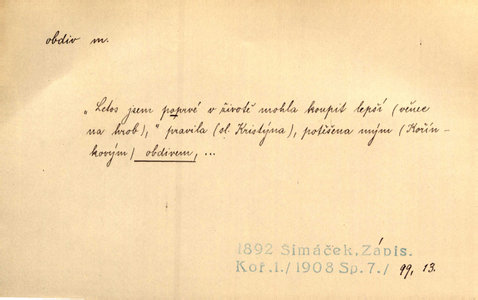 obdiv m.
„Letos jsem poprvé v životě mohla koupit lepší (věnce
na hrob),“ pravila (sl. Kristýna), potěšena mým (Kořín-
kovým) obdivem, ...
1892 Šimáček, Zápis.
Koř. 1./1903 Sp. 7./ 99, 13.